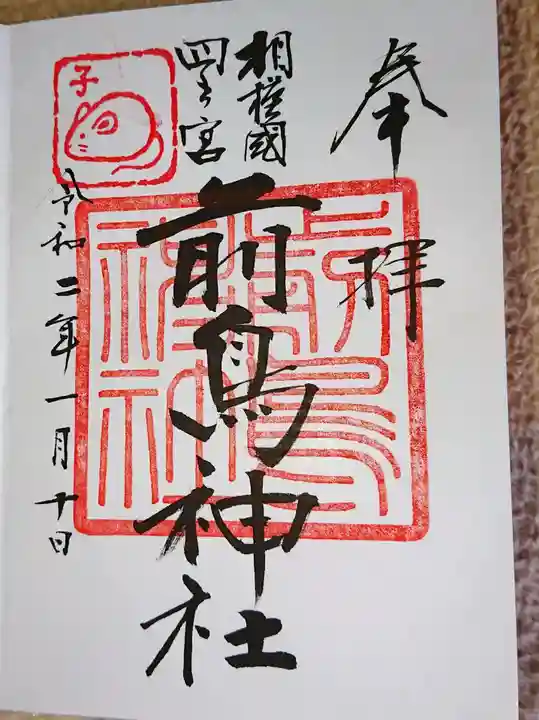 奉拝
相模國
四之宮
前鳥神社
令和二年一月十日
子